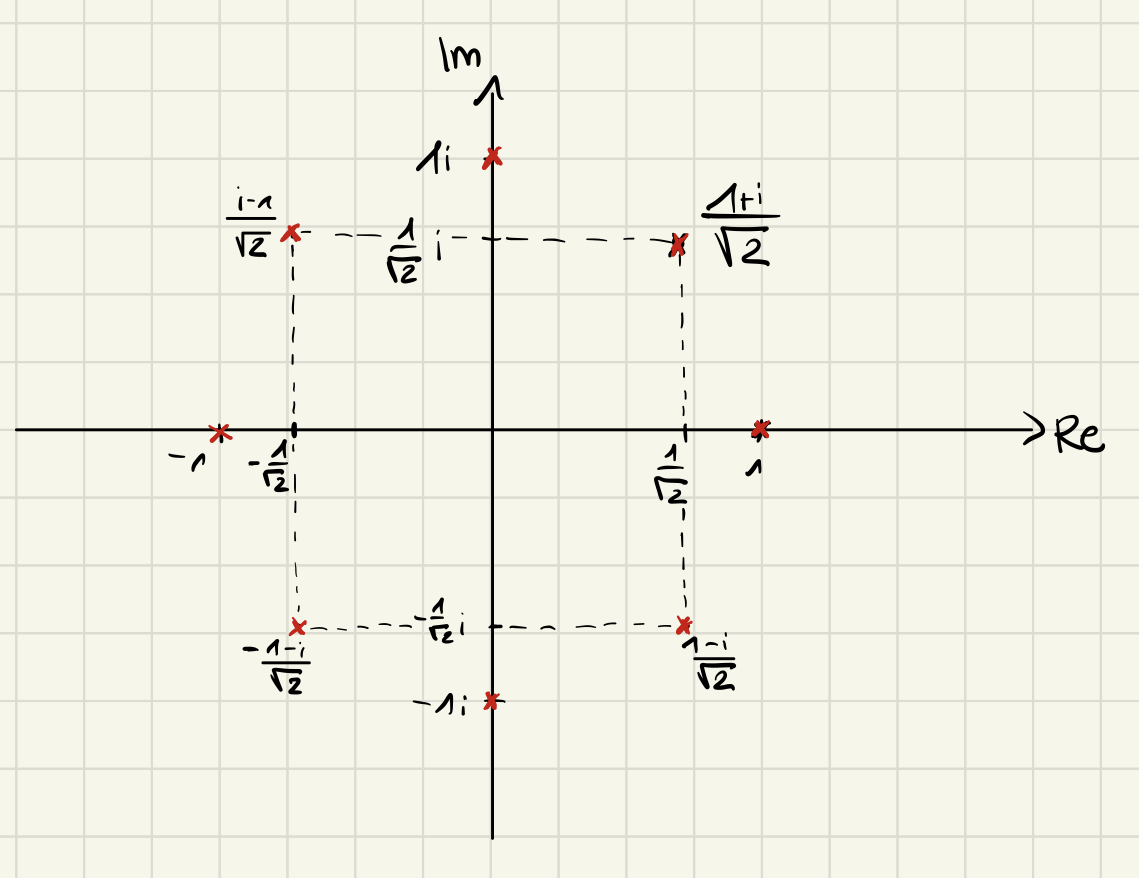 Im
1i
i-1/√2
1/√2 i
1+i/√2
-1
-1/√2
1/√2
1
Re
-1/√2 i
-1-i/√2
1-i/√2
-1i